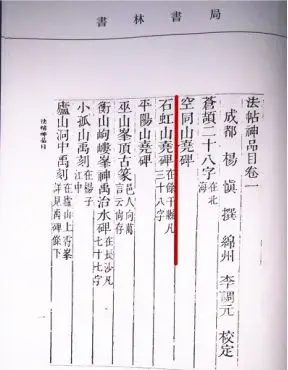 書林書局
法帖神品目卷一
成都 楊慎 撰 綿州 李調元 校定
蒼頡二十八字在北海
空同山堯碑
石虹山堯碑在餘干縣凡三十八字
平陽山堯碑
巫山峯頂古篆邑人向萬言云尚存
衡山岣嶁峯禹治水碑在長沙凡七十七字
小孤山禹刻在楊子江中
廬山洞中禹刻在廬山上霄峯詳見禹碑條下
法帖神品目
一